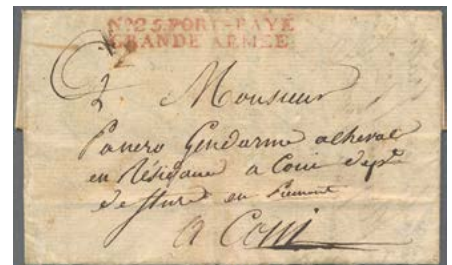 No. 25. PORT-PAYÉ
GRANDE ARMÉE
A Monsieur
Panero Gendarme acheval
en Résidance a Coni dept
de Sture en Piemont
a Coni